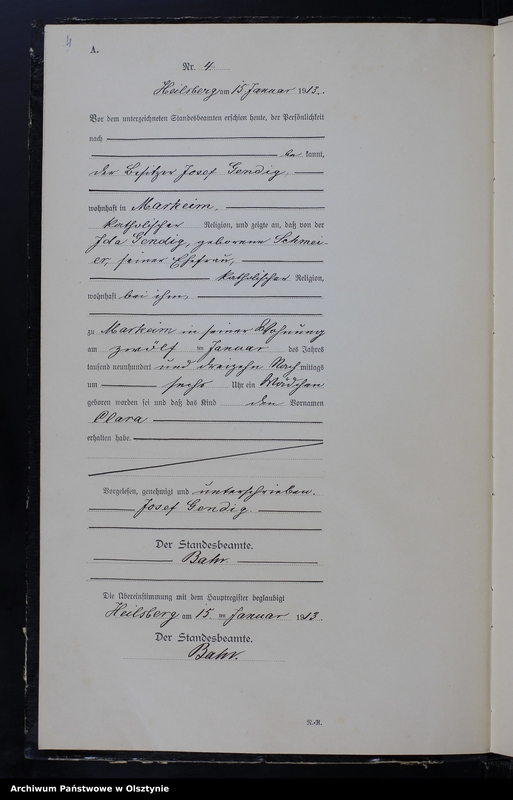 4
A.
Nr. 4.
Heilsberg am 15 Januar 1913.
Vor dem unterzeichneten Standesbeamten erschien heute, der Persönlichkeit
nach
be kannt,
der Besitzer Josef Gendig,
wohnhaft in Markeim,
katholischer Religion, und zeigte an, daß von der
Ida Gendig, geborene Schmei-
er, seiner Ehefrau,
katholischer Religion,
wohnhaft bei ihm,
zu Markeim in seiner Wohnung
am zwölf ten Januar des Jahres
tausend neunhundert und dreizehn Nach mittags
um sechs Uhr ein Mädchen
geboren worden sei und daß das Kind den Vornamen
Clara
erhalten habe.
Vorgelesen, genehmigt und unterschrieben.
Josef Gendig.
Der Standesbeamte.
Bahr.
Die Übereinstimmung mit dem Hauptregister beglaubigt
Heilsberg am 15. ten Januar 1913.
Der Standesbeamte.
Bahr.
N.-R.
Archiwum Państwowe w Olsztynie